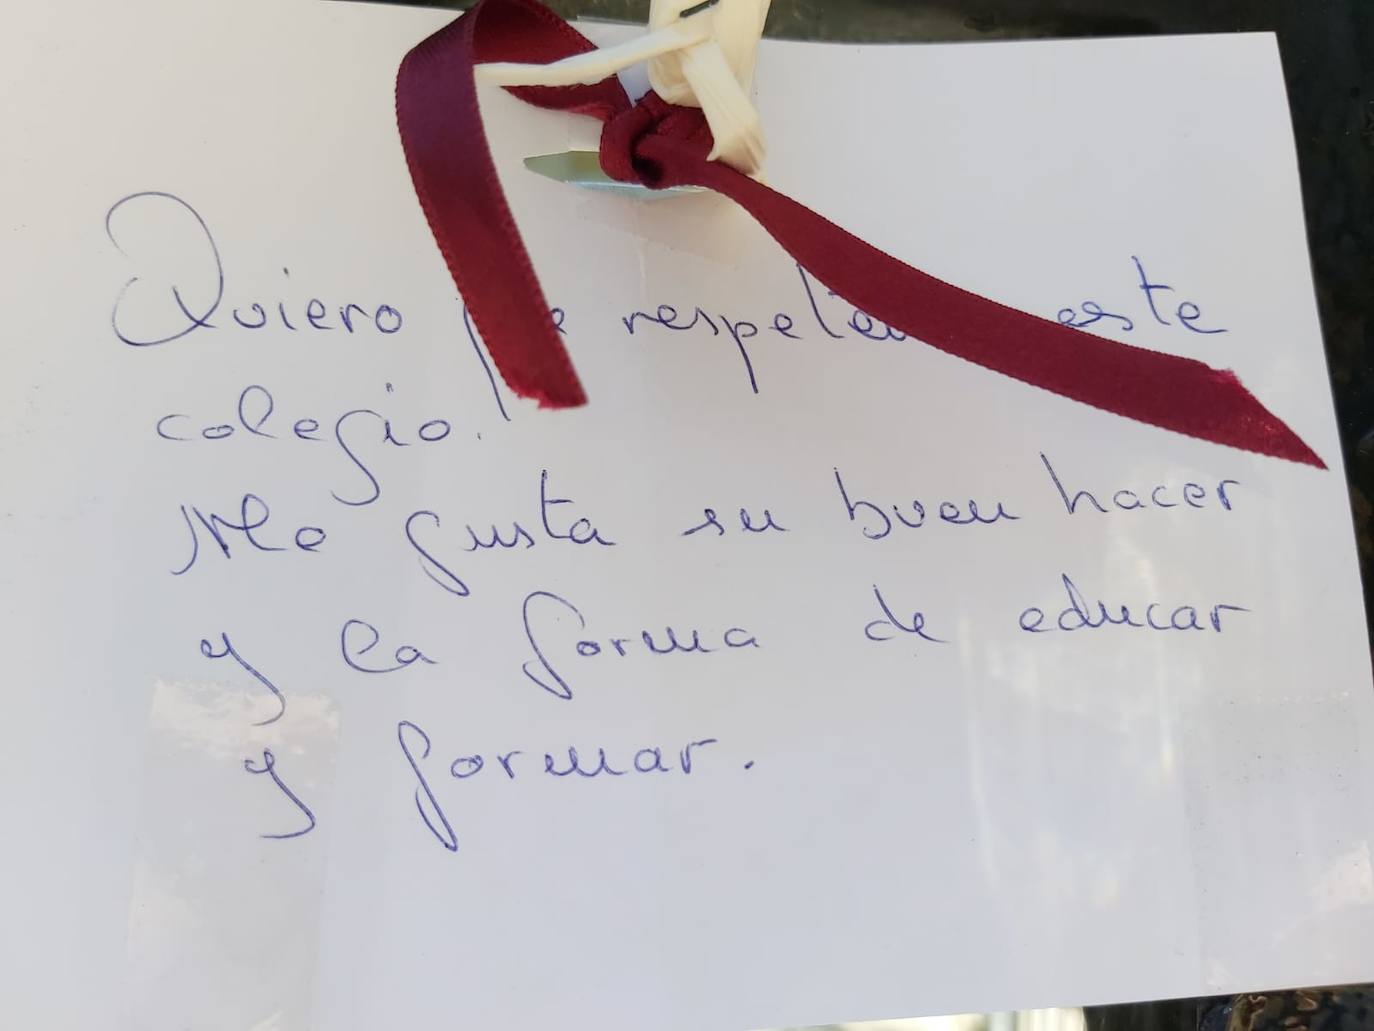 Quiero respeten este
colegio.
Me gusta su buen hacer
y la forma de educar
y formar.